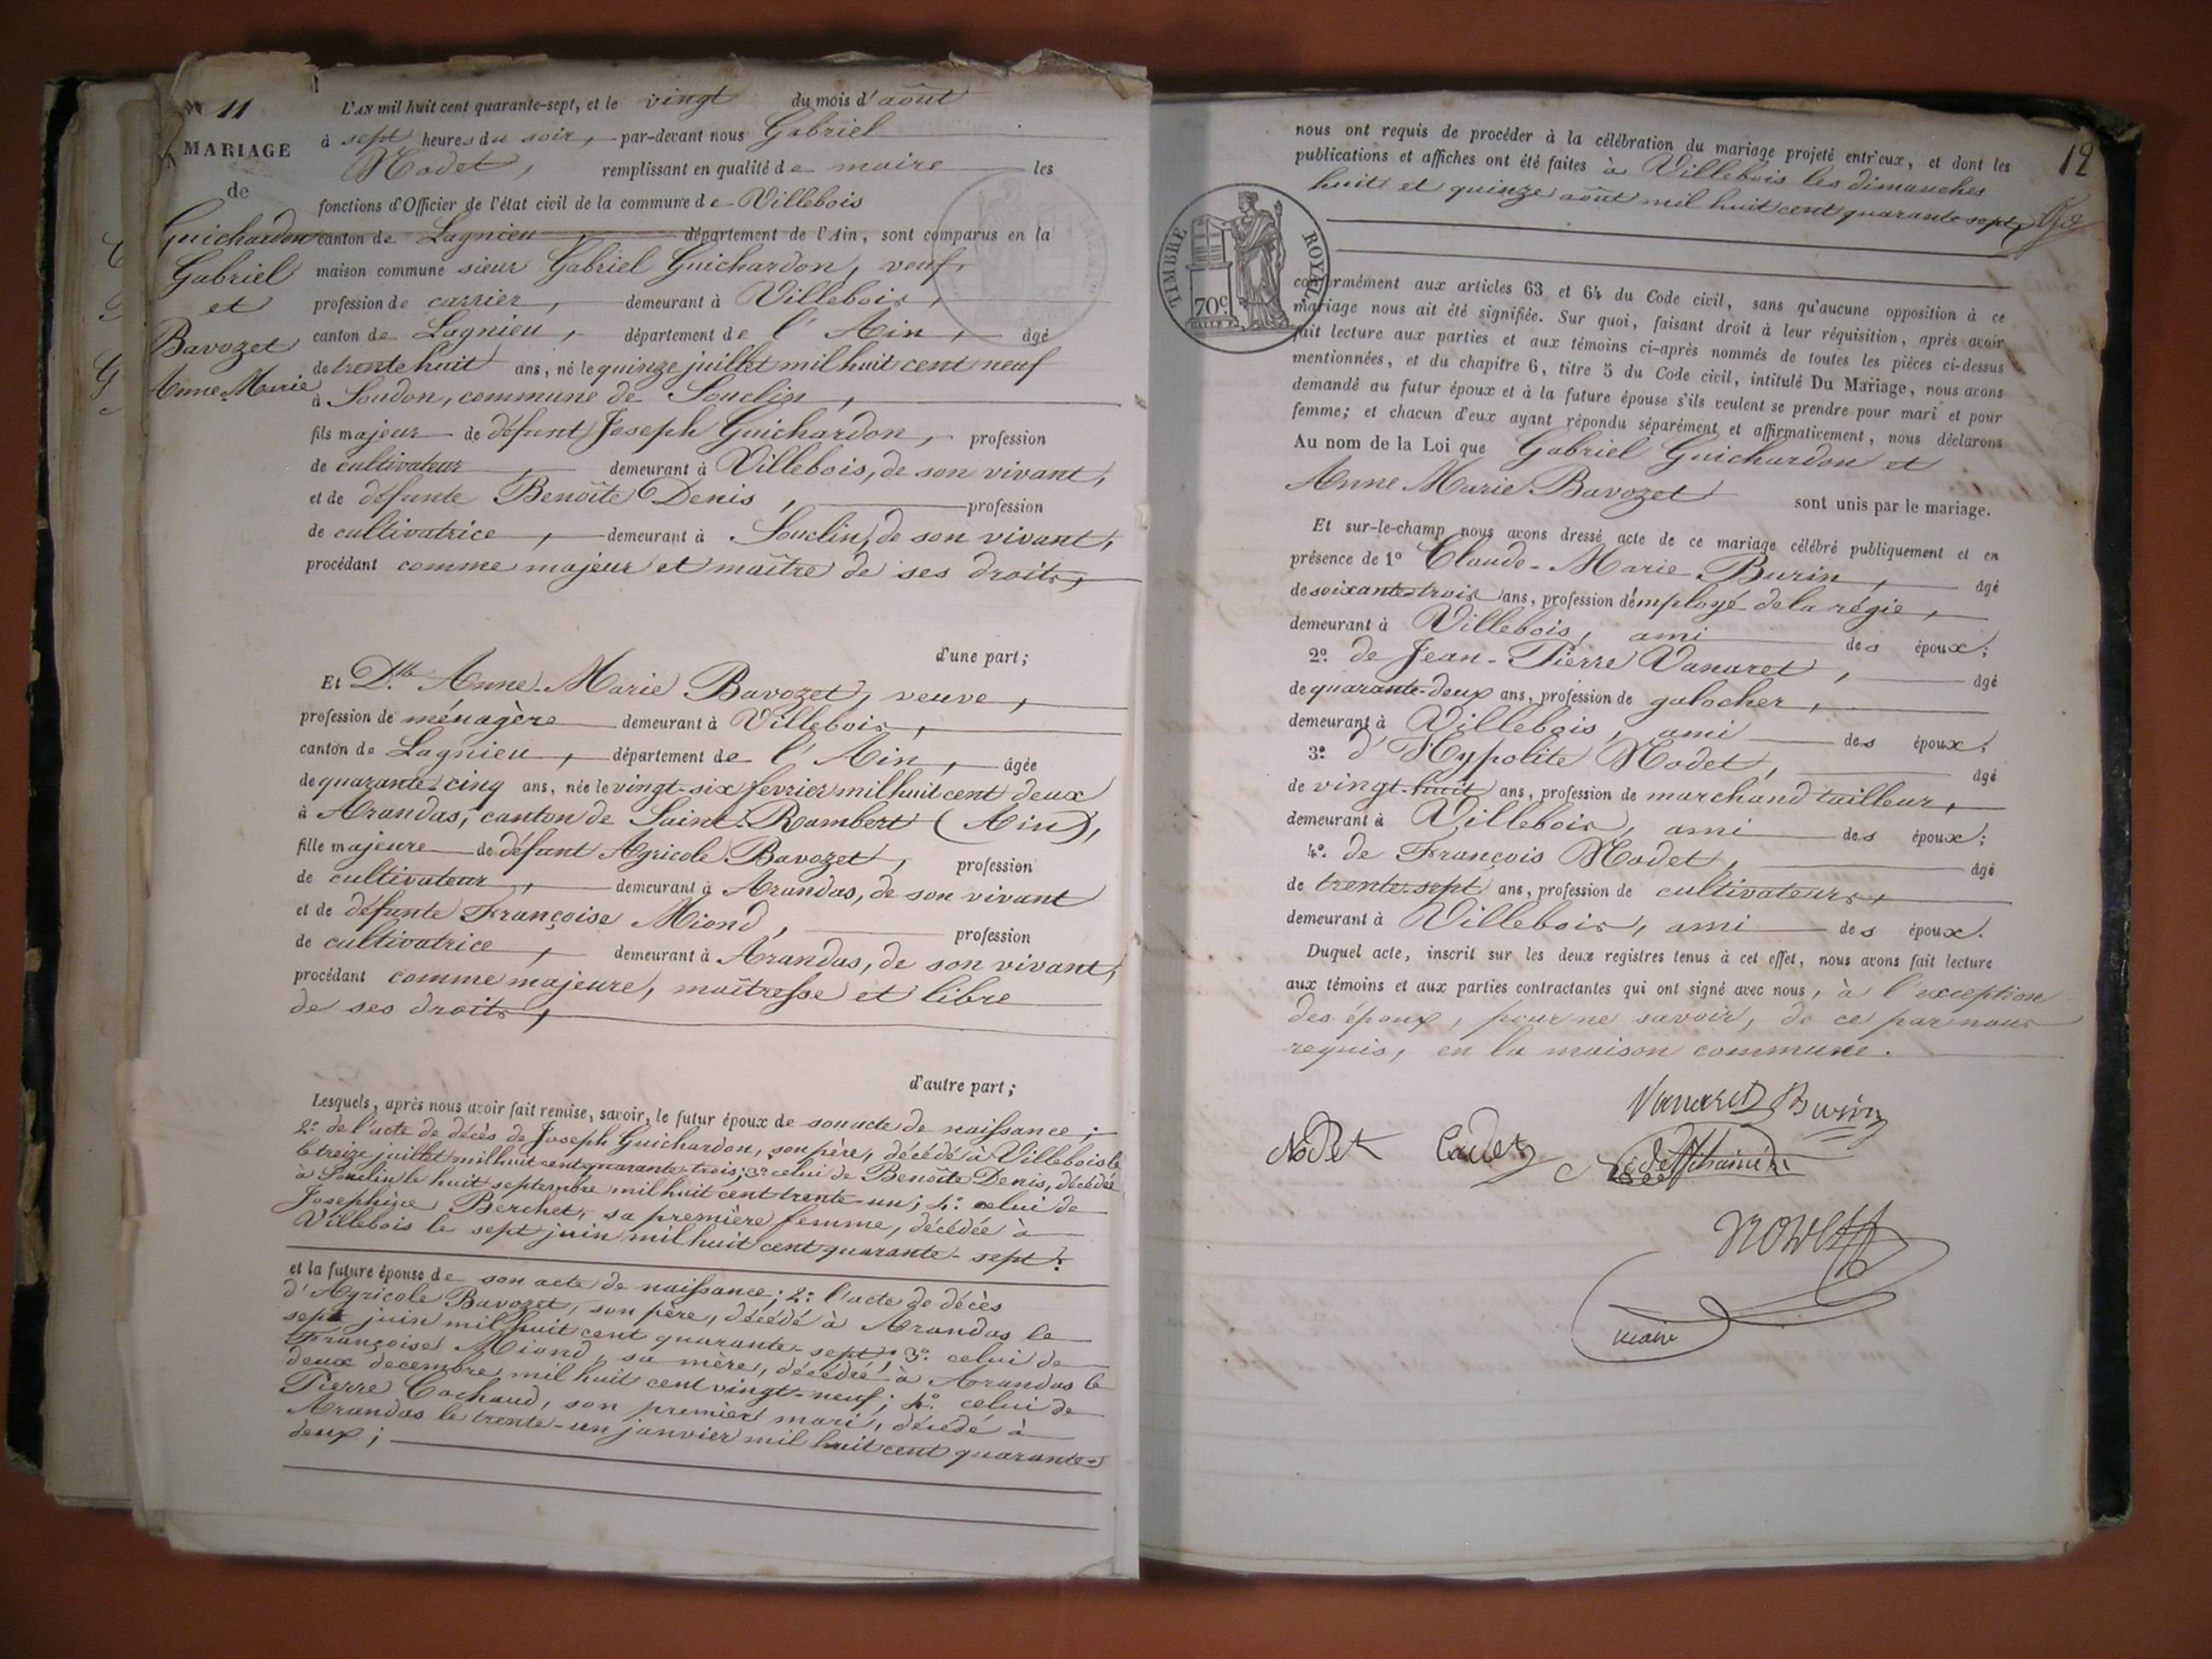 N° 11
MARIAGE
de
Guichardon
Gabriel
et
Bavozet
Anne-Marie
L'AN mil huit cent quarante-sept, et le vingt du mois d'août
à sept heures du soir, par-devant nous Gabriel
Nodet, remplissant en qualité de maire les
fonctions d'Officier de l'état civil de la commune de Villebois
canton de Lagnieu, département de l'Ain, sont comparus en la
maison commune sieur Gabriel Guichardon, veuf,
profession de carrier, demeurant à Villebois,
canton de Lagnieu, département de l'Ain, âgé
de trente huit ans, né le quinze juillet mil huit cent neuf
à Soudon, commune de Souclin,
fils majeur de défunt Joseph Guichardon, profession
de cultivateur, demeurant à Villebois, de son vivant,
et de défunte Benoîte Denis, profession
de cultivatrice, demeurant à Souclin, de son vivant,
procédant comme majeur et maître de ses droits,
d'une part;
Et Dlle Anne-Marie Bavozet, veuve,
profession de ménagère demeurant à Villebois,
canton de Lagnieu, département de l'Ain, âgée
de quarante-cinq ans, née le vingt-six fevrier mil huit cent deux
à Arandas, canton de Saint-Rambert (Ain),
fille majeure de défunt Agricole Bavozet, profession
de cultivateur, demeurant à Arandas, de son vivant
et de défunte Françoise Miond, profession
de cultivatrice, demeurant à Arandas, de son vivant,
procédant comme majeure, maîtresse et libre
de ses droits,
d'autre part;
Lesquels, après nous avoir fait remise, savoir, le futur époux de son acte de naissance;
2° de l'acte de décès de Joseph Guichardon, son père, décédé à Villebois le
le treize juillet mil huit cent quarante-trois; 3° celui de Benoîte Denis, décédée
à Souclin le huit septembre mil huit cent trente-un; 4° celui de
Josephine Berchet, sa première femme, décédée à
Villebois le sept juin mil huit cent quarante-sept;
et la future épouse de son acte de naissance; 2° l'acte de décès
d'Agricole Bavozet, son père, décédé à Arandas le
sept juin mil huit cent quarante-sept; 3° celui de
Françoise Miond, sa mère, décédée à Arandas le
deux decembre mil huit cent vingt-neuf; 4° celui de
Pierre Cochaud, son premier mari, décédé à
Arandas le trente-un janvier mil huit cent quarante-
deux;
12
nous ont requis de procéder à la célébration du mariage projeté entr'eux, et dont les
publications et affiches ont été faites à Villebois les dimanches
huit et quinze août mil huit cent quarante sept,
TIMBRE ROYAL
70c
conformément aux articles 63 et 64 du Code civil, sans qu'aucune opposition à ce
mariage nous ait été signifiée. Sur quoi, faisant droit à leur réquisition, après avoir
fait lecture aux parties et aux témoins ci-après nommés de toutes les pièces ci-dessus
mentionnées, et du chapitre 6, titre 5 du Code civil, intitulé Du Mariage, nous avons
demandé au futur époux et à la future épouse s'ils veulent se prendre pour mari et pour
femme; et chacun d'eux ayant répondu séparément et affirmativement, nous déclarons
Au nom de la Loi que Gabriel Guichardon et
Anne Marie Bavozet sont unis par le mariage.
Et sur-le-champ nous avons dressé acte de ce mariage célébré publiquement et en
présence de 1° Claude-Marie Burin, âgé
de soixante-trois ans, profession d'employé de la régie,
demeurant à Villebois, ami des époux;
2° de Jean-Pierre Vanaret, âgé
de quarante-deux ans, profession de galocher,
demeurant à Villebois, ami des époux;
3° d'Hypolite Nodet, âgé
de vingt-huit ans, profession de marchand tailleur,
demeurant à Villebois, ami des époux;
4° de François Nodet, âgé
de trente-sept ans, profession de cultivateur,
demeurant à Villebois, ami des époux.
Duquel acte, inscrit sur les deux registres tenus à cet effet, nous avons fait lecture
aux témoins et aux parties contractantes qui ont signé avec nous, à l'exception
des époux, pour ne savoir, de ce par nous
requis, en la maison commune.
Vanaret Burin
Nodet Cadet
Nodet
maire